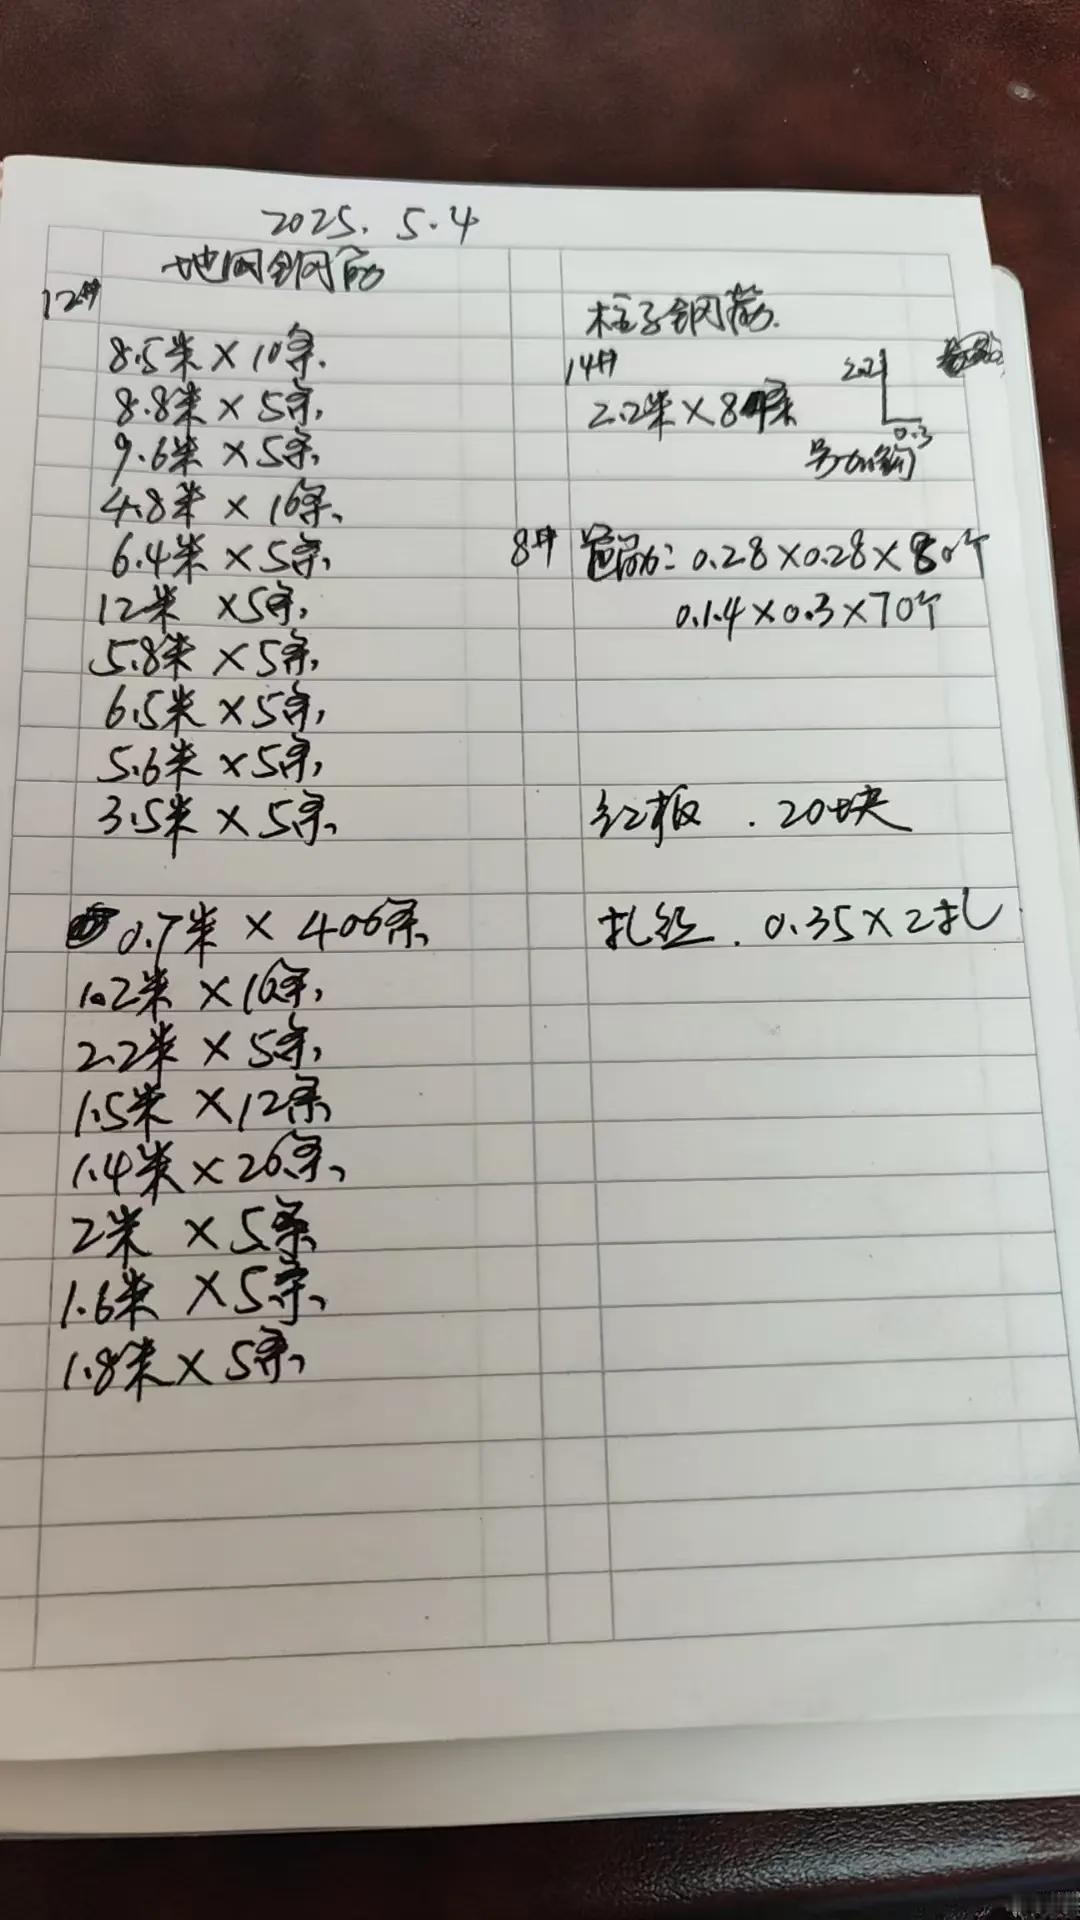 2025. 5.4
地网钢筋
12#
8.5米 × 10条.
8.8米 × 5条,
9.6米 × 5条,
4.8米 × 16条、
6.4米 × 5条、
12米 × 5条,
5.8米 × 5条,
6.5米 × 5条,
5.6米 × 5条,
3.5米 × 5条,
0.7米 × 406条,
1.2米 × 16条,
2.2米 × 5条,
1.5米 × 12条,
1.4米 × 26条、
2米 × 5条
1.6米 × 5条、
1.8米 × 5条,
柱子钢筋.
14#
2.2米 × 8条
2.2
0.3
另加钩
8# 箍筋: 0.28 × 0.28 × 80个
0.1.4 × 0.3 × 70个
红板 . 20块
扎丝 . 0.35 × 2扎